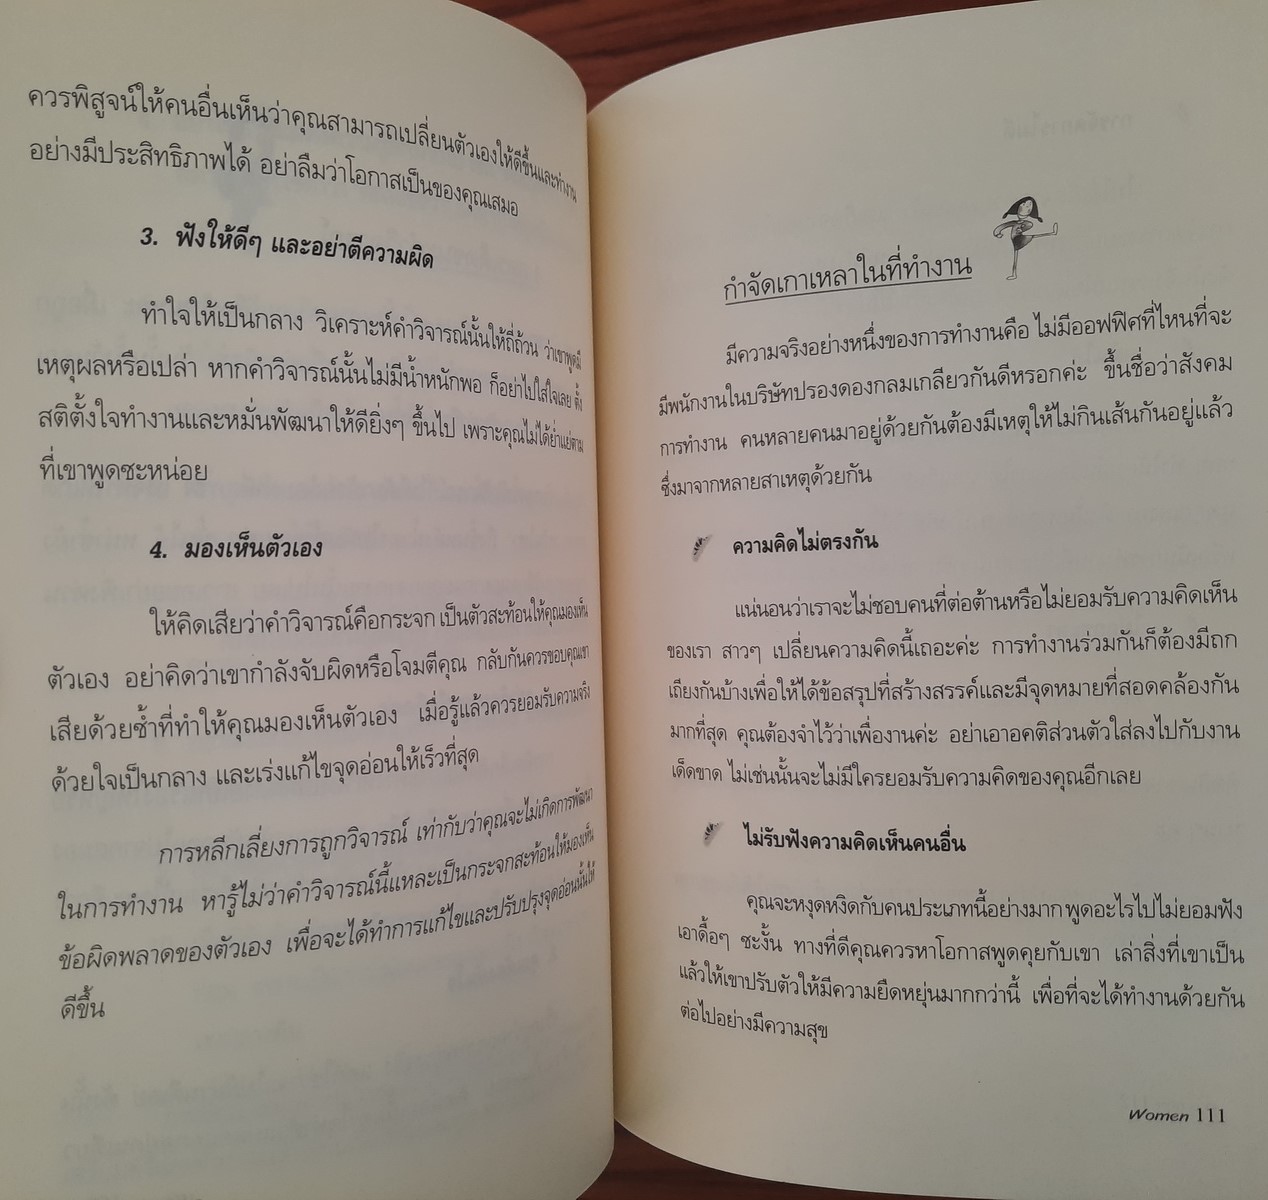 ควรพิสูจน์ให้คนอื่นเห็นว่าคุณสามารถเปลี่ยนตัวเองให้ดีขึ้นและทำงาน
อย่างมีประสิทธิภาพได้ อย่าลืมว่าโอกาสเป็นของคุณเสมอ
3. ฟังให้ดีๆ และอย่าตีความผิด
ทำใจให้เป็นกลาง วิเคราะห์คำวิจารณ์นั้นให้ถี่ถ้วน ว่าเขาพูดมี
เหตุผลหรือเปล่า หากคำวิจารณ์นั้นไม่มีน้ำหนักพอ ก็อย่าไปใส่ใจเลย ตั้ง
สติตั้งใจทำงานและหมั่นพัฒนาให้ดียิ่งๆ ขึ้นไป เพราะคุณไม่ได้ย่ำแย่ตาม
ที่เขาพูดซะหน่อย
4. มองเห็นตัวเอง
ให้คิดเสียว่าคำวิจารณ์คือกระจก เป็นตัวสะท้อนให้คุณมองเห็น
ตัวเอง อย่าคิดว่าเขากำลังจับผิดหรือโจมตีคุณ กลับกันควรขอบคุณเขา
เสียด้วยซ้ำที่ทำให้คุณมองเห็นตัวเอง เมื่อรู้แล้วควรยอมรับความจริง
ด้วยใจเป็นกลาง และเร่งแก้ไขจุดอ่อนให้เร็วที่สุด
การหลีกเลี่ยงการถูกวิจารณ์ เท่ากับว่าคุณจะไม่เกิดการพัฒนา
ในการทำงาน หารู้ไม่ว่าคำวิจารณ์นี้แหละเป็นกระจกสะท้อนให้มองเห็น
ข้อผิดพลาดของตัวเอง เพื่อจะได้ทำการแก้ไขและปรับปรุงจุดอ่อนนั้นให้
ดีขึ้น
กำจัดเกาเหลาในที่ทำงาน
มีความจริงอย่างหนึ่งของการทำงานคือ ไม่มีออฟฟิศที่ไหนที่จะ
มีพนักงานในบริษัทปรองดองกลมเกลียวกันดีหรอกค่ะ ขึ้นชื่อว่าสังคม
การทำงาน คนหลายคนมาอยู่ด้วยกันต้องมีเหตุให้ไม่กินเส้นกันอยู่แล้ว
ซึ่งมาจากหลายสาเหตุด้วยกัน
ความคิดไม่ตรงกัน
แน่นอนว่าเราจะไม่ชอบคนที่ต่อต้านหรือไม่ยอมรับความคิดเห็น
ของเรา สาวๆ เปลี่ยนความคิดนี้เถอะค่ะ การทำงานร่วมกันก็ต้องมีถก
เถียงกันบ้างเพื่อให้ได้ข้อสรุปที่สร้างสรรค์และมีจุดหมายที่สอดคล้องกัน
มากที่สุด คุณต้องจำไว้ว่าเพื่องานค่ะ อย่าเอาอคติส่วนตัวใส่ลงไปกับงาน
เด็ดขาด ไม่เช่นนั้นจะไม่มีใครยอมรับความคิดของคุณอีกเลย
ไม่รับฟังความคิดเห็นคนอื่น
คุณจะหงุดหงิดกับคนประเภทนี้อย่างมาก พูดอะไรไปไม่ยอมฟัง
เอาดื้อๆ ซะงั้น ทางที่ดีคุณควรหาโอกาสพูดคุยกับเขา เล่าสิ่งที่เขาเป็น
แล้วให้เขาปรับตัวให้มีความยืดหยุ่นมากกว่านี้ เพื่อที่จะได้ทำงานด้วยกัน
ต่อไปอย่างมีความสุข
Women 111